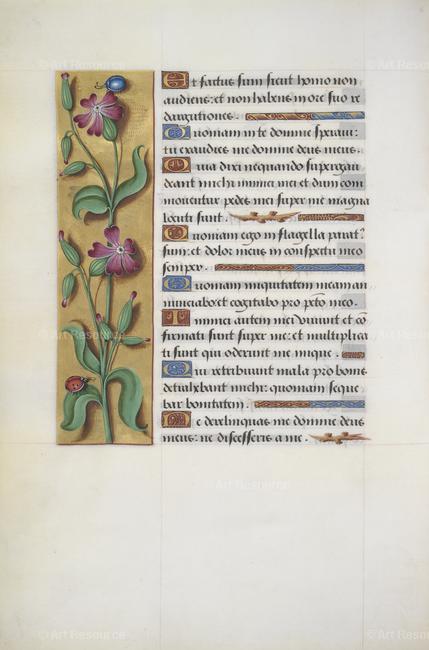 Et factus sum sicut homo non
audiens: et non habens in ore suo re
dargutiones.
Quoniam in te domine speravi:
tu exaudies me domine deus meus.
Quia dixi nequando supergau
deant michi inimici mei et dum com
moventur pedes mei super me magna
locuti sunt.
Quoniam ego in flagella parat9
sum: et dolor meus in conspectu meo
semper.
Quoniam iniquitatem meam an
nunciabo: et cogitabo pro pcto meo.
Inimici autem mei vivunt et cō
firmati sunt super me: et multiplica
ti sunt qui oderunt me inique.
Qui retribuunt mala pro bonis
detrahebant michi: quoniam seque
bar bonitatem.
Ne derelinquas me domine deus
meus: ne discesseris a me.
© Art Resource